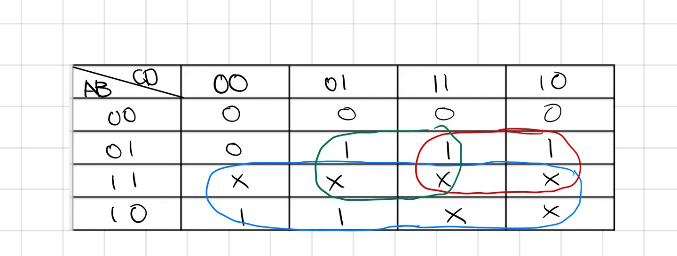 AB CD 00 01 11 10
00 0 0 0 0
01 0 1 1 1
11 X X X X
10 1 1 X X